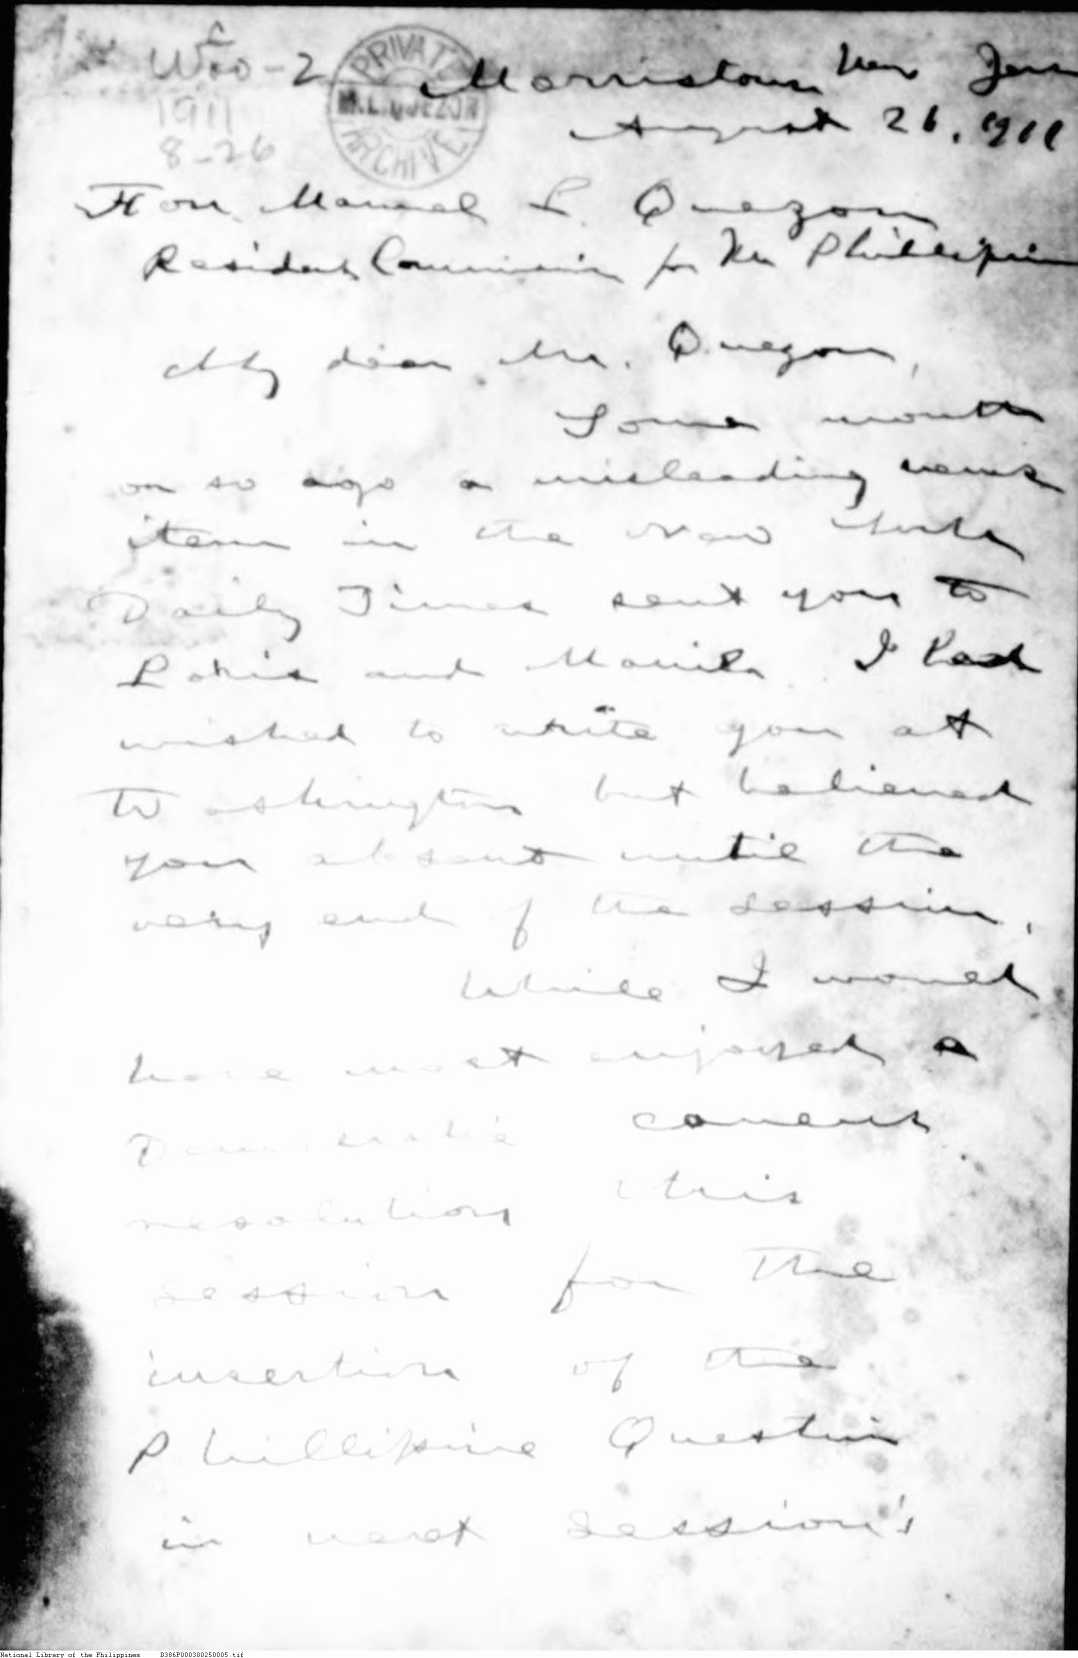 Woo-2
1911
8-26
PRIVATE
M.L. QUEZON
ARCHIVE
Morristown New Jers
August 26, 1911
Hon. Manuel L. Quezon
Resident Commissioner for the Phillipin
My dear Mr. Quezon,
Some month
or so ago a misleading news
item in the New York
Daily Times sent you to
Paris and Manila. I had
wished to write you at
Washington but believed
you absent until the
very end of the session.
While I would
have most enjoyed a
Democratic caucus
resolution this
session for the
insertion of the
Phillipine Question
in next session's
National Library of the Philippines B386P000300250005.tif